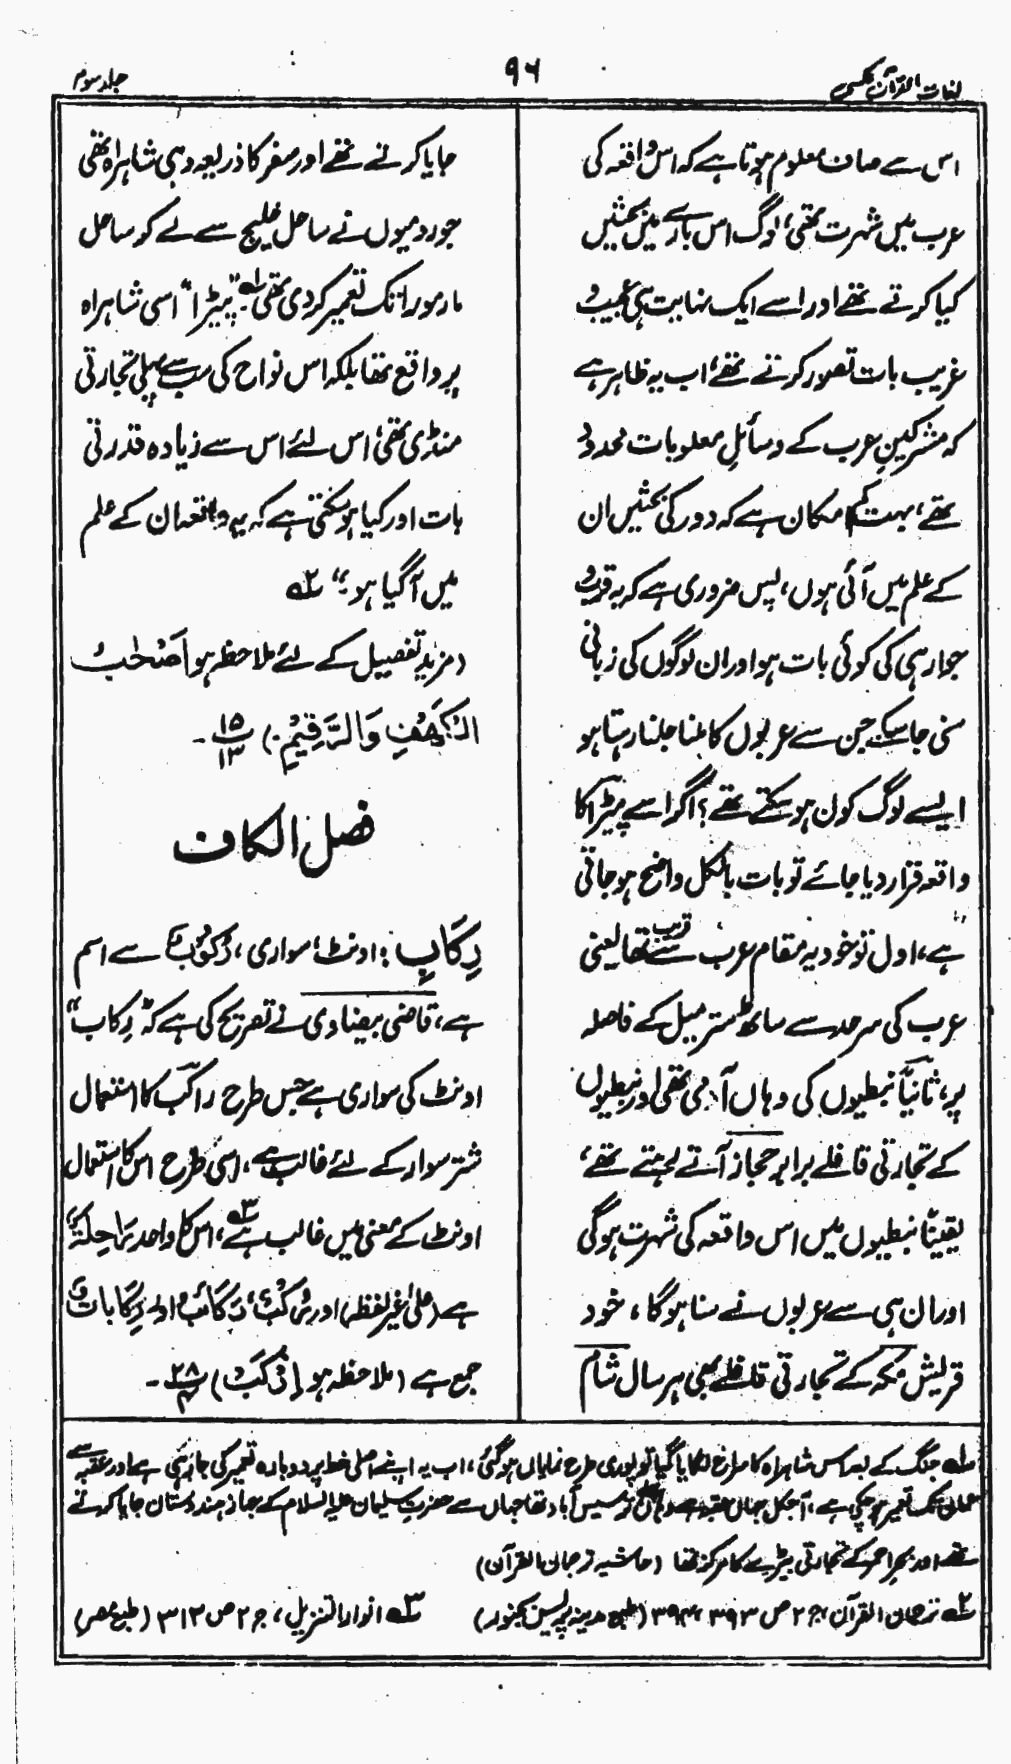 لغات القرآن عکسی
۹۶
جلد سوم
اس سے صاف معلوم ہوتا ہے کہ اس واقعہ کی
عرب میں شہرت تھی، لوگ اس بارے میں بحثیں
کیا کرتے تھے اور اسے ایک نہایت ہی عجیب و
غریب بات تصور کرتے تھے، اب یہ ظاہر ہے
کہ مشرکینِ عرب کے وسائلِ معلومات محدود
تھے، بہت کم امکان ہے کہ دور کی بحثیں ان
کے علم میں آئی ہوں، پس ضروری ہے کہ یہ قرب و
جوار ہی کی کوئی بات ہو اور ان لوگوں کی زبانی
سنی جا سکے جن سے عربوں کا ملنا جلنا رہتا ہو
ایسے لوگ کون ہو سکتے تھے؟ اگر اسے پیٹرا کا
واقعہ قرار دیا جائے تو بات بالکل واضح ہو جاتی
ہے، اول تو خود یہ مقام عرب سے قریب تھا یعنی
عرب کی سرحد سے ساٹھ ستر میل کے فاصلہ
پر، ثانیاً نبطیوں کی وہاں آبادی تھی اور نبطیوں
کے تجارتی قافلے برابر حجاز آتے رہتے تھے،
یقیناً نبطیوں میں اس واقعہ کی شہرت ہوگی
اور ان ہی سے عربوں نے سنا ہوگا، خود
قریش مکہ کے تجارتی قافلے بھی ہر سال شام
جایا کرتے تھے اور سفر کا ذریعہ وہی شاہراہ تھی
جو رومیوں نے ساحل خلیج سے لے کر ساحل
مارمورا تک تعمیر کر دی تھی۔ لہ "پیٹرا" اسی شاہراہ
پر واقع تھا بلکہ اس نواح کی سب سے پہلی تجارتی
منڈی تھی، اس لئے اس سے زیادہ قدرتی
بات اور کیا ہو سکتی ہے کہ یہ واقعہ ان کے علم
میں آ گیا ہو؛" ۲ہ
(مزید تفصیل کے لئے ملاحظہ ہو اَصْحٰبُ
الْکَهْفِ وَالرَّقِیْمِ۔) ۱۵/۱۳ ۔
فصل الکاف
رِکَابِ: اونٹ، سواری، رُکُوْبٌ سے اسم
ہے، قاضی بیضاوی نے تصریح کی ہے کہ "رِکاب"
اونٹ کی سواری ہے جس طرح راکب کا استعمال
شتر سوار کے لئے غالب ہے، اسی طرح اس کا استعمال
اونٹ کے معنی میں غالب ہے ۳ہ، اس کا واحد رَاحِلَةٌ
ہے (علیٰ غیر لفظہ) اور رُکُبٌ، رَکَائِبُ اور رِکَابَاتٌ
جمع ہے (ملاحظہ ہو اِرْکَبْ) ۲۸ ۔
لہ جنگ کے بعد اس شاہراہ کا سراغ لگایا گیا تو پوری طرح نمایاں ہوگئی، اب یہ اپنے اصلی خط پر دوبارہ تعمیر کی جا رہی ہے اور عقبہ سے
عمان تک تعمیر ہو چکی ہے، آجکل جہاں عقبہ ہے وہاں ترسیس آباد تھا جہاں سے حضرت سلیمان علیہ السلام کے جہاز ہندوستان جایا کرتے
تھے اور بحر احمر کے تجارتی بیڑے کا مرکز تھا (حاشیہ ترجمان القرآن)
۲ہ ترجمان القرآن، ج ۲ ص ۳۹۳، ۳۹۴ (طبع مدینہ پریس بجنور)
۳ہ انوار التنزیل، ج ۲ ص ۳۱۲ (طبع مصر)